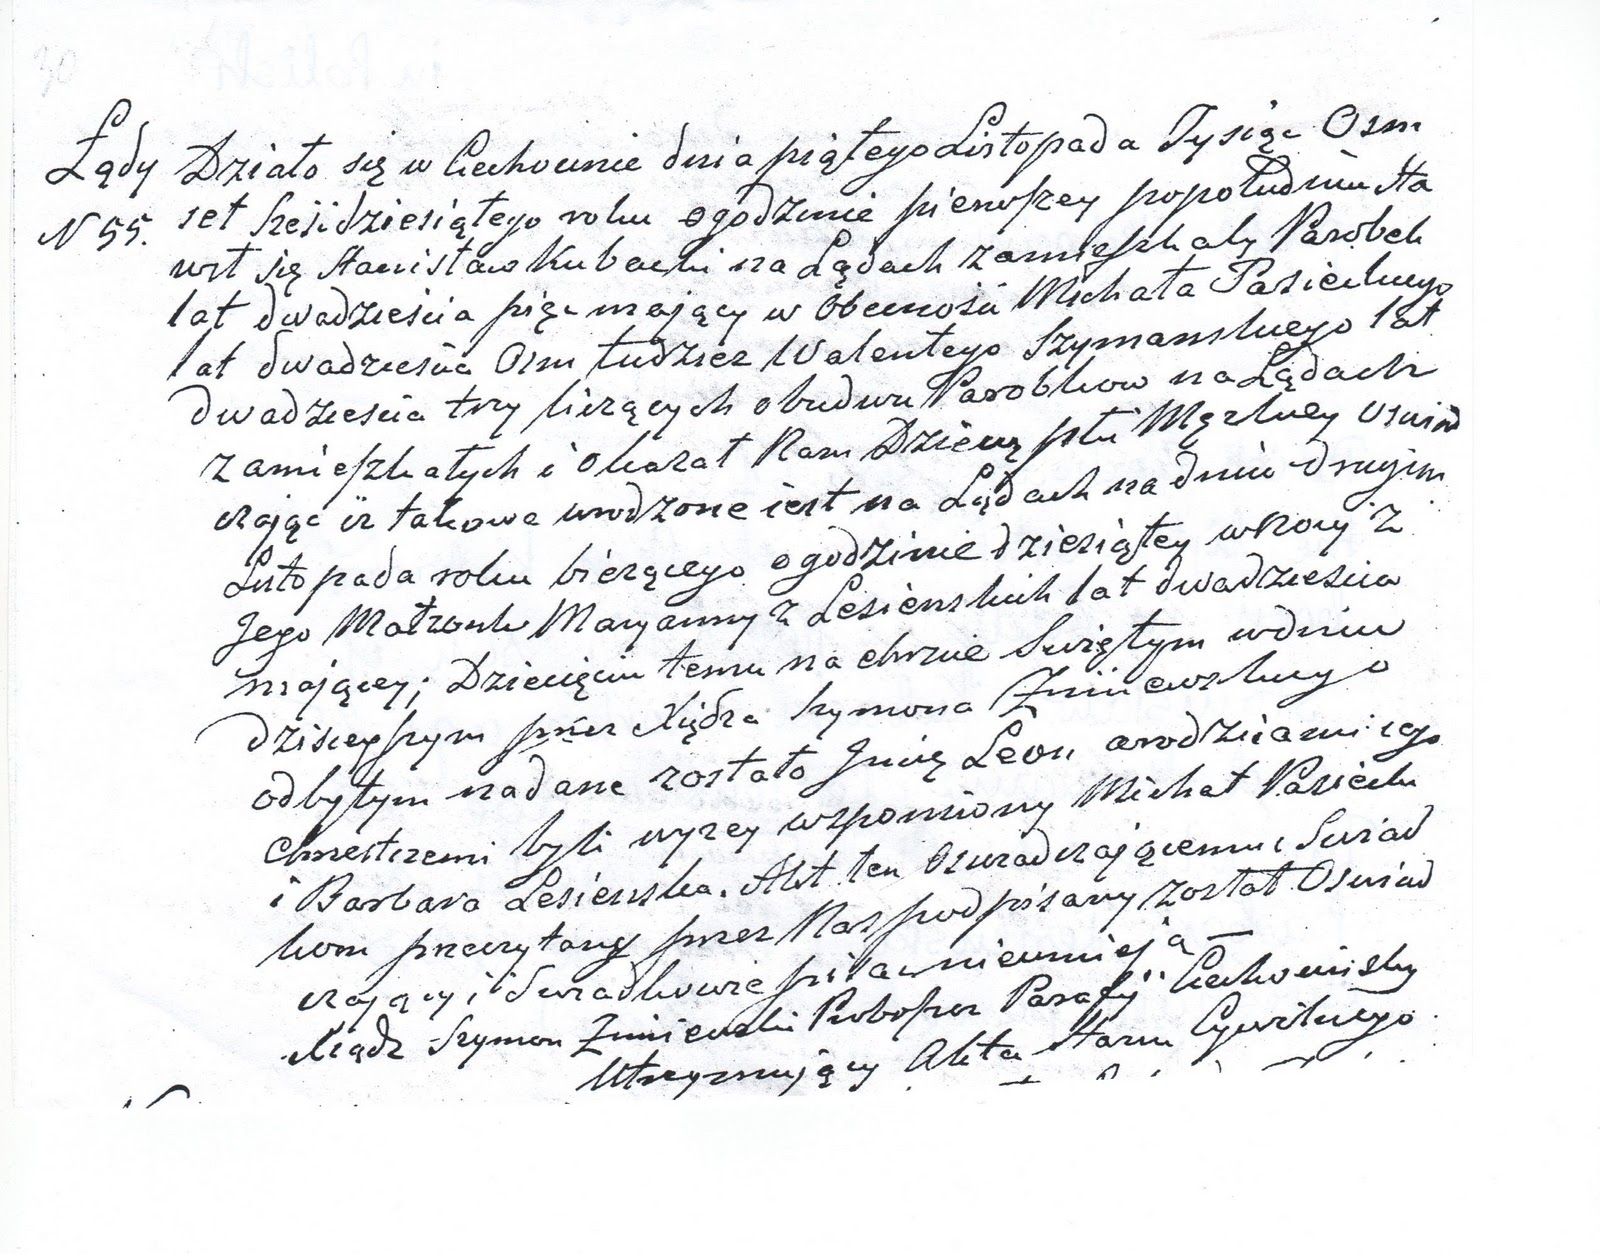 Łądy Działo się w Ciechocinie dnia piątego Listopada Tysiąc Osm
N 55. set sześćdziesiątego roku o godzinie pierwszey popołudniu sta
wił się Stanisław Kubacki na Łądach zamieszkały Parobek
lat dwadzieścia pięc mający w Obecności Michała Pasieckiego
lat dwadzieścia Osm tudzież Walentego Szymanskiego lat
dwadzieścia trzy liczących obudwu Parobkow na Łądach
zamieszkałych i Okazał Nam Dziecię płci Męzkiey Oswiad
czając iż takowe urodzone iest na Łądach na dniu drugim
Listopada roku bieżącego o godzinie dziesiątey w Nocy z
Jego Małżonki Maryanny z Lesienskich lat dwadzieścia
mającey; Dziecięciu temu na chrzcie Swiętym w dniu
dzisieyszym przez Xiędza Szymona Zniniewskiego
odbytym nadane zostało Imię Leon a rodzicami iego
chrzestnemi byli wyzey wspomiony Michał Pasiecki
i Barbara Lesienska. Akt ten Oswiadczającemu i Swiad
kom przeczytany przez Nas podpisany został Oswiad
czający i Swiadkowie pisac nieumieją —
Xiądz Szymon Zniniewski Proboszcz Parafij Ciechocinsky
Utrzymujący Akta Stanu Cywilnego